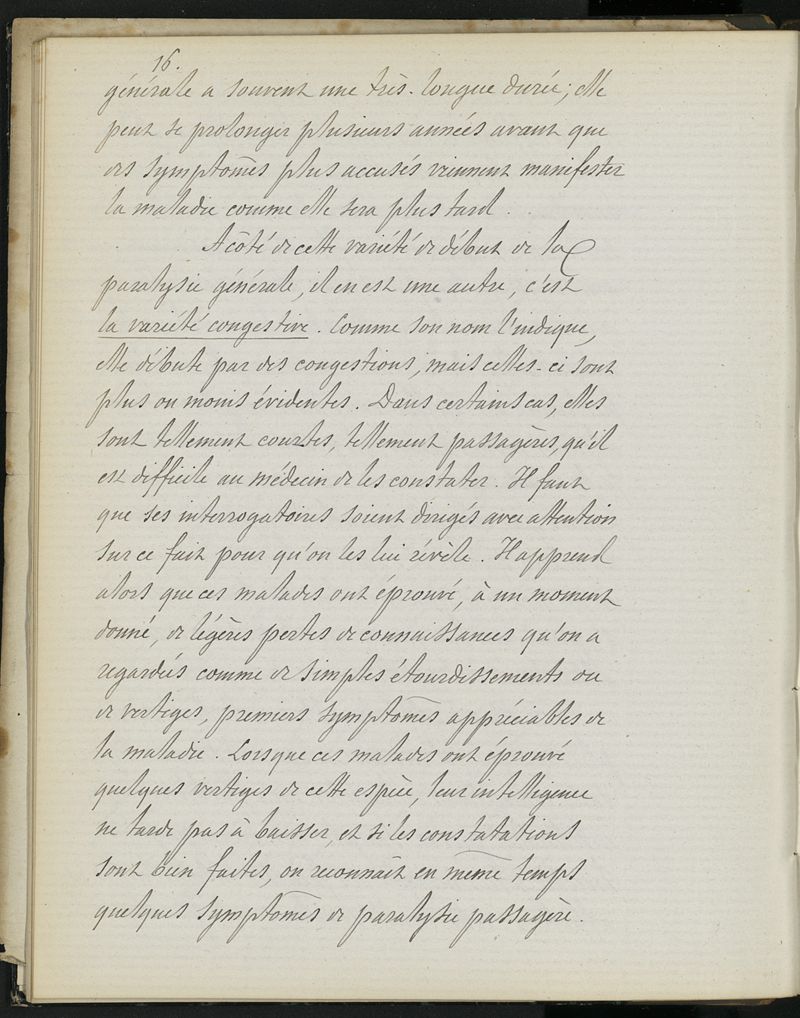 16.
générale a souvent une très-longue durée; elle
peut se prolonger plusieurs années avant que
des symptômes plus accusés viennent manifester
la maladie comme elle sera plus tard.
A côté de cette variété de début de la
paralysie générale, il en est une autre, c'est
la variété congestive. Comme son nom l'indique,
elle débute par des congestions, mais celles-ci sont
plus ou moins évidentes. Dans certains cas, elles
sont tellement courtes, tellement passagères, qu'il
est difficile au médecin de les constater. Il faut
que ses interrogatoires soient dirigés avec attention
sur ce fait pour qu'on les lui révèle. Il apprend
alors que ces malades ont éprouvé, à un moment
donné, de légères pertes de connaissances qu'on a
regardés comme de simples étourdissements ou
de vertiges, premiers symptômes appréciables de
la maladie. Lorsque ces malades ont éprouvé
quelques vertiges de cette espèce, leur intelligence
ne tarde pas à baisser, et si les constatations
sont bien faites, on reconnaît en même temps
quelques symptômes de paralysie passagère.